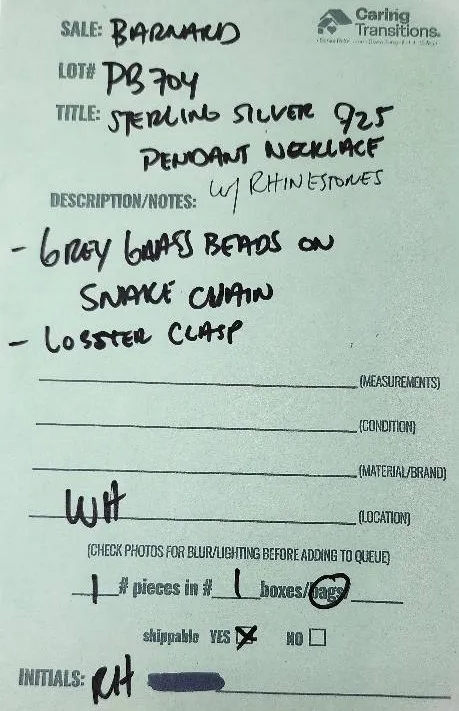 Caring
Transitions.
SALE: BARNARD
LOT# PB704
TITLE: STERLING SILVER 925
PENDANT NECKLACE
W/ RHINESTONES
DESCRIPTION/NOTES:
- GREY GLASS BEADS ON
SNAKE CHAIN
- LOBSTER CLASP
(MEASUREMENTS)
(CONDITION)
(MATERIAL/BRAND)
WH (LOCATION)
(CHECK PHOTOS FOR BLUR/LIGHTING BEFORE ADDING TO QUEUE)
1 # pieces in # 1 boxes/bags
shippable YES ☒ NO ☐
INITIALS: RH